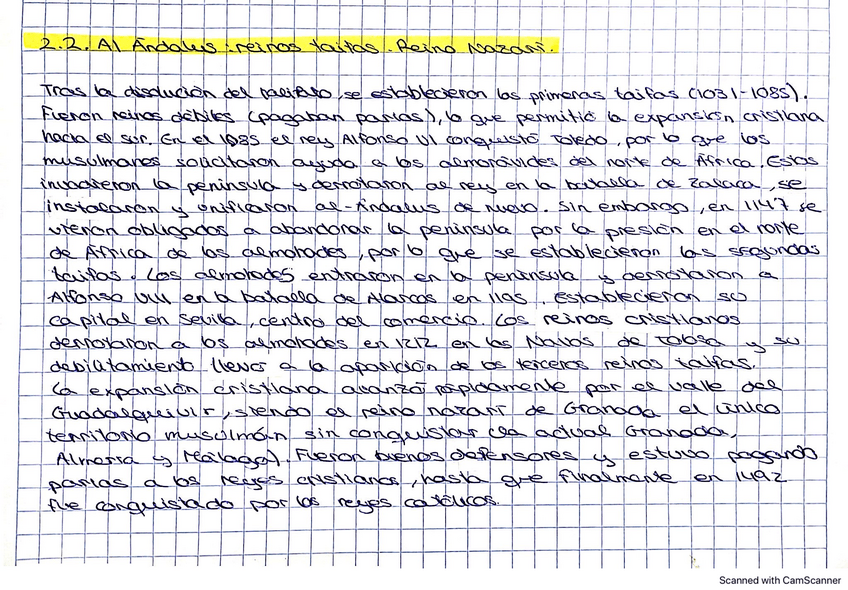 2.2. Al Ándalus: reinos taifas. Reino Nazarí.
Tras la disolución del califato, se establecieron las primeras taifas (1031-1085).
Fueron reinos débiles (pagaban parias), lo que permitió la expansión cristiana
hacia el sur. En el 1085 el rey Alfonso VI conquistó Toledo, por lo que los
musulmanes solicitaron ayuda a los almorávides del norte de África. Estos
invadieron la península y derrotaron al rey en la batalla de Zalaca, se
instalaron y unificaron al-Ándalus de nuevo. Sin embargo, en 1147 se
vieron obligados a abandonar la península por la presión en el norte
de África de los almohades, por lo que se establecieron las segundas
taifas. Los almohades entraron en la península y derrotaron a
Alfonso VIII en la batalla de Alarcos en 1195, establecieron su
capital en Sevilla, centro del comercio. Los reinos cristianos
derrotaron a los almohades en 1212 en las Navas de Tolosa y su
debilitamiento llevó a la aparición de los terceros reinos taifas.
La expansión cristiana avanzó rápidamente por el valle del
Guadalquivir, siendo el reino nazarí de Granada el único
territorio musulmán sin conquistar (la actual Granada,
Almería y Málaga). Fueron buenos defensores y estuvo pagando
parias a los reyes cristianos, hasta que finalmente en 1492
fue conquistado por los reyes católicos.
Scanned with CamScanner